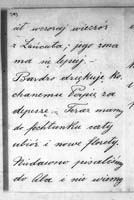 ził wczoraj wieczór
z Łańcuta; jego ma
ma ma lepiej. –
Bardzo dziękuję ko-
chanemu Papie za
depeszę – Teraz mamy
do fechtunku cały
ubiór i nowe florety.
Niedawno pisaliśmy
do Ala i nie wiemy